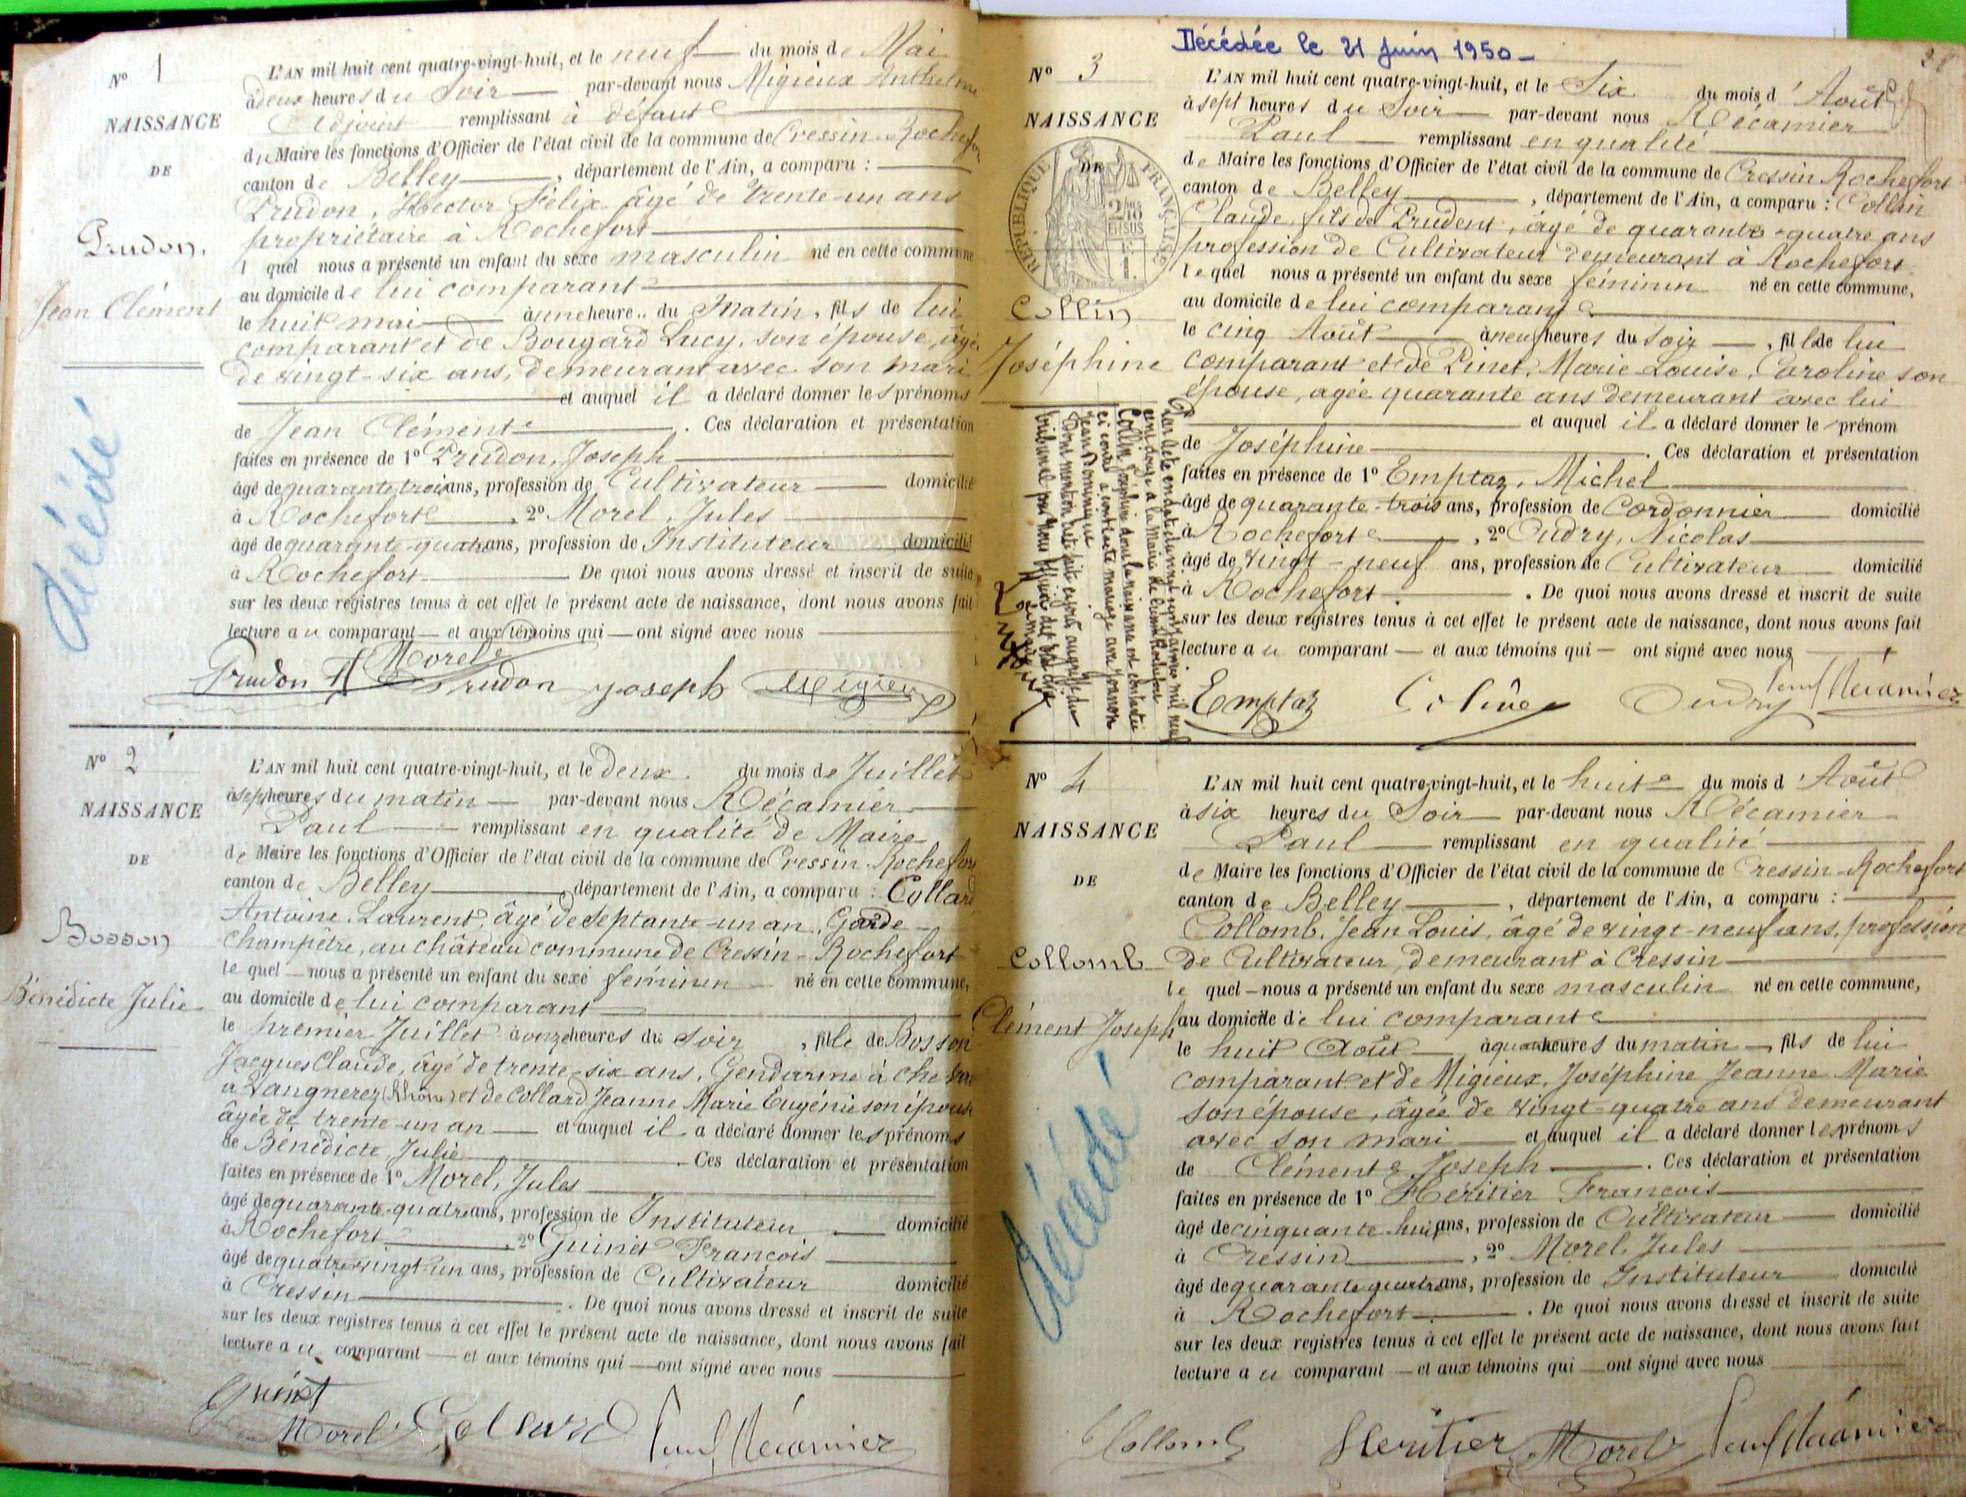 N° 1
NAISSANCE
DE
Prudon.
Jean Clément
décédé
L'AN mil huit cent quatre-vingt-huit, et le neuf du mois de Mai
à deux heures du Soir par-devant nous Migieux Anthelme
Adjoint remplissant à défaut
du Maire les fonctions d'Officier de l'état civil de la commune de Cressin-Rochefort
canton de Belley, département de l'Ain, a comparu :
Prudon, Hector Félix âgé de trente-un ans
propriétaire à Rochefort
l quel nous a présenté un enfant du sexe masculin né en cette commune
au domicile de lui comparant
le huit mai à une heure .. du Matin, fils de lui
comparant et de Bougard Lucy, son épouse, âgée
de vingt-six ans, demeurant avec son mari
et auquel il a déclaré donner les prénoms
de Jean Clément. Ces déclaration et présentation
faites en présence de 1° Prudon, Joseph
âgé de quarante trois ans, profession de Cultivateur domicilié
à Rochefort, 2° Morel, Jules
âgé de quarante-quatre ans, profession de Instituteur domicilié
à Rochefort De quoi nous avons dressé et inscrit de suite
sur les deux registres tenus à cet effet le présent acte de naissance, dont nous avons fait
lecture au comparant et aux témoins qui ont signé avec nous
Prudon H Morel Prudon Joseph Migieux
N° 2
NAISSANCE
DE
Bosson
Bénédicte Julie
L'AN mil huit cent quatre-vingt-huit, et le deux. du mois de Juillet
à sept heures du matin par-devant nous Récamier
Paul remplissant en qualité de Maire
de Maire les fonctions d'Officier de l'état civil de la commune de Cressin-Rochefort
canton de Belley, département de l'Ain, a comparu : Collard
Antoine Laurent, âgé de septante-un an, Garde-
champêtre, au château commune de Cressin-Rochefort
le quel nous a présenté un enfant du sexe féminin né en cette commune,
au domicile de lui comparant
le premier Juillet à onze heures du soir, fille de Bosson
Jacques Claude, âgé de trente-six ans, Gendarme à cheval
(Rhône) et de Collard Jeanne Marie Eugénie son épouse
âgée de trente-un an et auquel il a déclaré donner les prénoms
de Bénédicte Julie Ces déclaration et présentation
faites en présence de 1° Morel, Jules
âgé de quarante-quatre ans, profession de Instituteur domicilié
à Rochefort, 2° Guinet François
âgé de quatre vingt-un ans, profession de Cultivateur domicilié
à Cressin. De quoi nous avons dressé et inscrit de suite
sur les deux registres tenus à cet effet le présent acte de naissance, dont nous avons fait
lecture au comparant et aux témoins qui ont signé avec nous
Guinet
Morel Collard Paul Récamier
Décédée le 21 Juin 1950
38
N° 3
NAISSANCE
DE
RÉPUBLIQUE FRANÇAISE
Collin
Joséphine
L'AN mil huit cent quatre-vingt-huit, et le Six du mois d'Août
à sept heures du Soir par-devant nous Récamier
Paul remplissant en qualité
de Maire les fonctions d'Officier de l'état civil de la commune de Cressin Rochefort
canton de Belley, département de l'Ain, a comparu : Collin
Claude, fils de Prudent, âgé de quarante-quatre ans
profession de Cultivateur demeurant à Rochefort
le quel nous a présenté un enfant du sexe féminin né en cette commune,
au domicile de lui comparant
le cinq Août à neuf heures du soir, fille de lui
comparant et de Pinet, Marie Louise, Caroline son
épouse, agée quarante ans demeurant avec lui
et auquel il a déclaré donner le prénom
de Joséphine. Ces déclaration et présentation
faites en présence de 1° Emptaz, Michel
âgé de quarante-trois ans, profession de Cordonnier domicilié
à Rochefort, 2° Oudry, Nicolas
âgé de vingt-neuf ans, profession de Cultivateur domicilié
à Rochefort. De quoi nous avons dressé et inscrit de suite
sur les deux registres tenus à cet effet le présent acte de naissance, dont nous avons fait
lecture au comparant et aux témoins qui ont signé avec nous
Emptaz Colin Oudry Paul Récamier
Par acte en date du vingt sept janvier mil neuf
cent douze à la Mairie de Cressin Rochefort
Collin Joséphine dont la naissance est constatée
ci contre a contracté mariage avec
Jean Dominique
Dont mention faite
tribunal par Nous Officier de l'état civil
N° 4
NAISSANCE
DE
Collomb
Clément Joseph
Décédé
L'AN mil huit cent quatre-vingt-huit, et le huit du mois d'Août
à six heures du Soir par-devant nous Récamier
Paul remplissant en qualité
de Maire les fonctions d'Officier de l'état civil de la commune de Cressin-Rochefort
canton de Belley, département de l'Ain, a comparu :
Collomb, Jean Louis, âgé de vingt-neuf ans, profession
de Cultivateur, demeurant à Cressin
le quel nous a présenté un enfant du sexe masculin né en cette commune,
au domicile de lui comparant
le huit Août à quatre heures du matin, fils de lui
comparant et de Migieux, Joséphine Jeanne Marie
son épouse, âgée de vingt-quatre ans demeurant
avec son mari et auquel il a déclaré donner les prénoms
de Clément Joseph. Ces déclaration et présentation
faites en présence de 1° Héritier François
âgé de cinquante-huit ans, profession de Cultivateur domicilié
à Cressin, 2° Morel, Jules
âgé de quarante quatre ans, profession de Instituteur domicilié
à Rochefort. De quoi nous avons dressé et inscrit de suite
sur les deux registres tenus à cet effet le présent acte de naissance, dont nous avons fait
lecture au comparant et aux témoins qui ont signé avec nous
Collomb Héritier Morel Paul Récamier